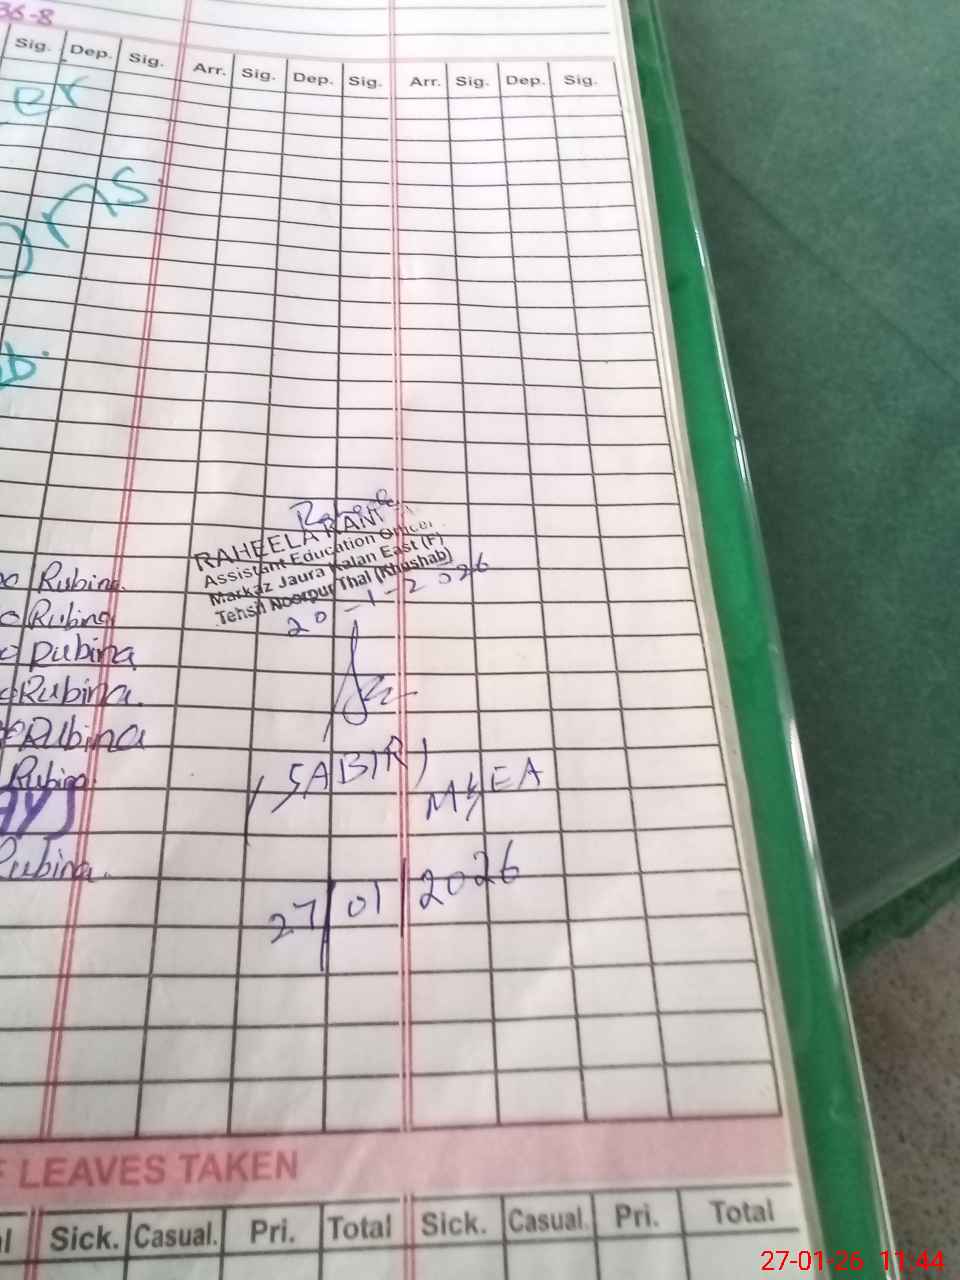 36-8
Sig. Dep. Sig. Arr. Sig. Dep. Sig. Arr. Sig. Dep. Sig.
er
ons.
b.
RAHEELA RANI
Assistant Education Officer
Markaz Jaura Kalan East (F)
Tehsil Noorpur Thal (Khushab)
20-1-2026
Rubina
Rubina
Rubina
Rubina
Rubina
Rubina
(SABIR)
MEA
Rubina
27/01/2026
LEAVES TAKEN
Sick. Casual. Pri. Total Sick. Casual. Pri. Total
27-01-26 11:44